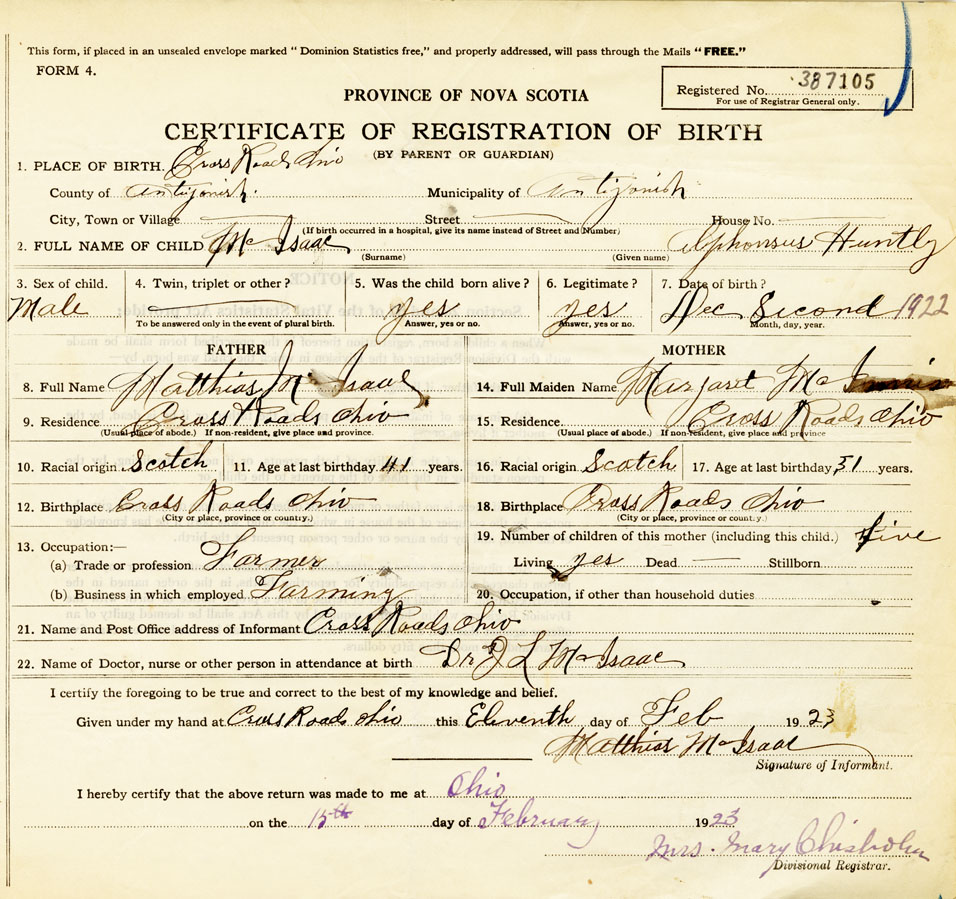 This form, if placed in an unsealed envelope marked "Dominion Statistics free," and properly addressed, will pass through the Mails "FREE."
FORM 4.
Registered No. 387105
For use of Registrar General only.
PROVINCE OF NOVA SCOTIA
CERTIFICATE OF REGISTRATION OF BIRTH
(BY PARENT OR GUARDIAN)
1. PLACE OF BIRTH. Cross Roads Ohio
County of Antigonish. Municipality of Antigonish
City, Town or Village Street House No.
(If birth occurred in a hospital, give its name instead of Street and Number)
2. FULL NAME OF CHILD Mc Isaac Alphonsus Huntly
(Surname) (Given name)
3. Sex of child. 4. Twin, triplet or other? 5. Was the child born alive? 6. Legitimate? 7. Date of birth?
Male yes yes Dec Second 1922
To be answered only in the event of plural birth. Answer, yes or no. Answer, yes or no. Month, day, year.
FATHER MOTHER
8. Full Name Matthias Mc Isaac 14. Full Maiden Name Margaret Mc
9. Residence Cross Roads Ohio 15. Residence. Cross Roads Ohio
(Usual place of abode.) If non-resident, give place and province. (Usual place of abode.) If non-resident, give place and province
10. Racial origin Scotch 11. Age at last birthday 41 years. 16. Racial origin Scotch 17. Age at last birthday 31 years.
12. Birthplace Cross Roads Ohio 18. Birthplace Cross Roads Ohio
(City or place, province or country.) (City or place, province or country.)
13. Occupation:— 19. Number of children of this mother (including this child.) five
(a) Trade or profession Farmer Living yes Dead Stillborn
(b) Business in which employed Farming 20. Occupation, if other than household duties
21. Name and Post Office address of Informant Cross Roads Ohio
22. Name of Doctor, nurse or other person in attendance at birth Dr J L Mc Isaac
I certify the foregoing to be true and correct to the best of my knowledge and belief.
Given under my hand at Cross Roads Ohio this Eleventh day of Feb 1923
Matthias Mc Isaac
Signature of Informant.
I hereby certify that the above return was made to me at Ohio
on the 15th day of February 1923
Mrs. Mary Chisholm
Divisional Registrar.